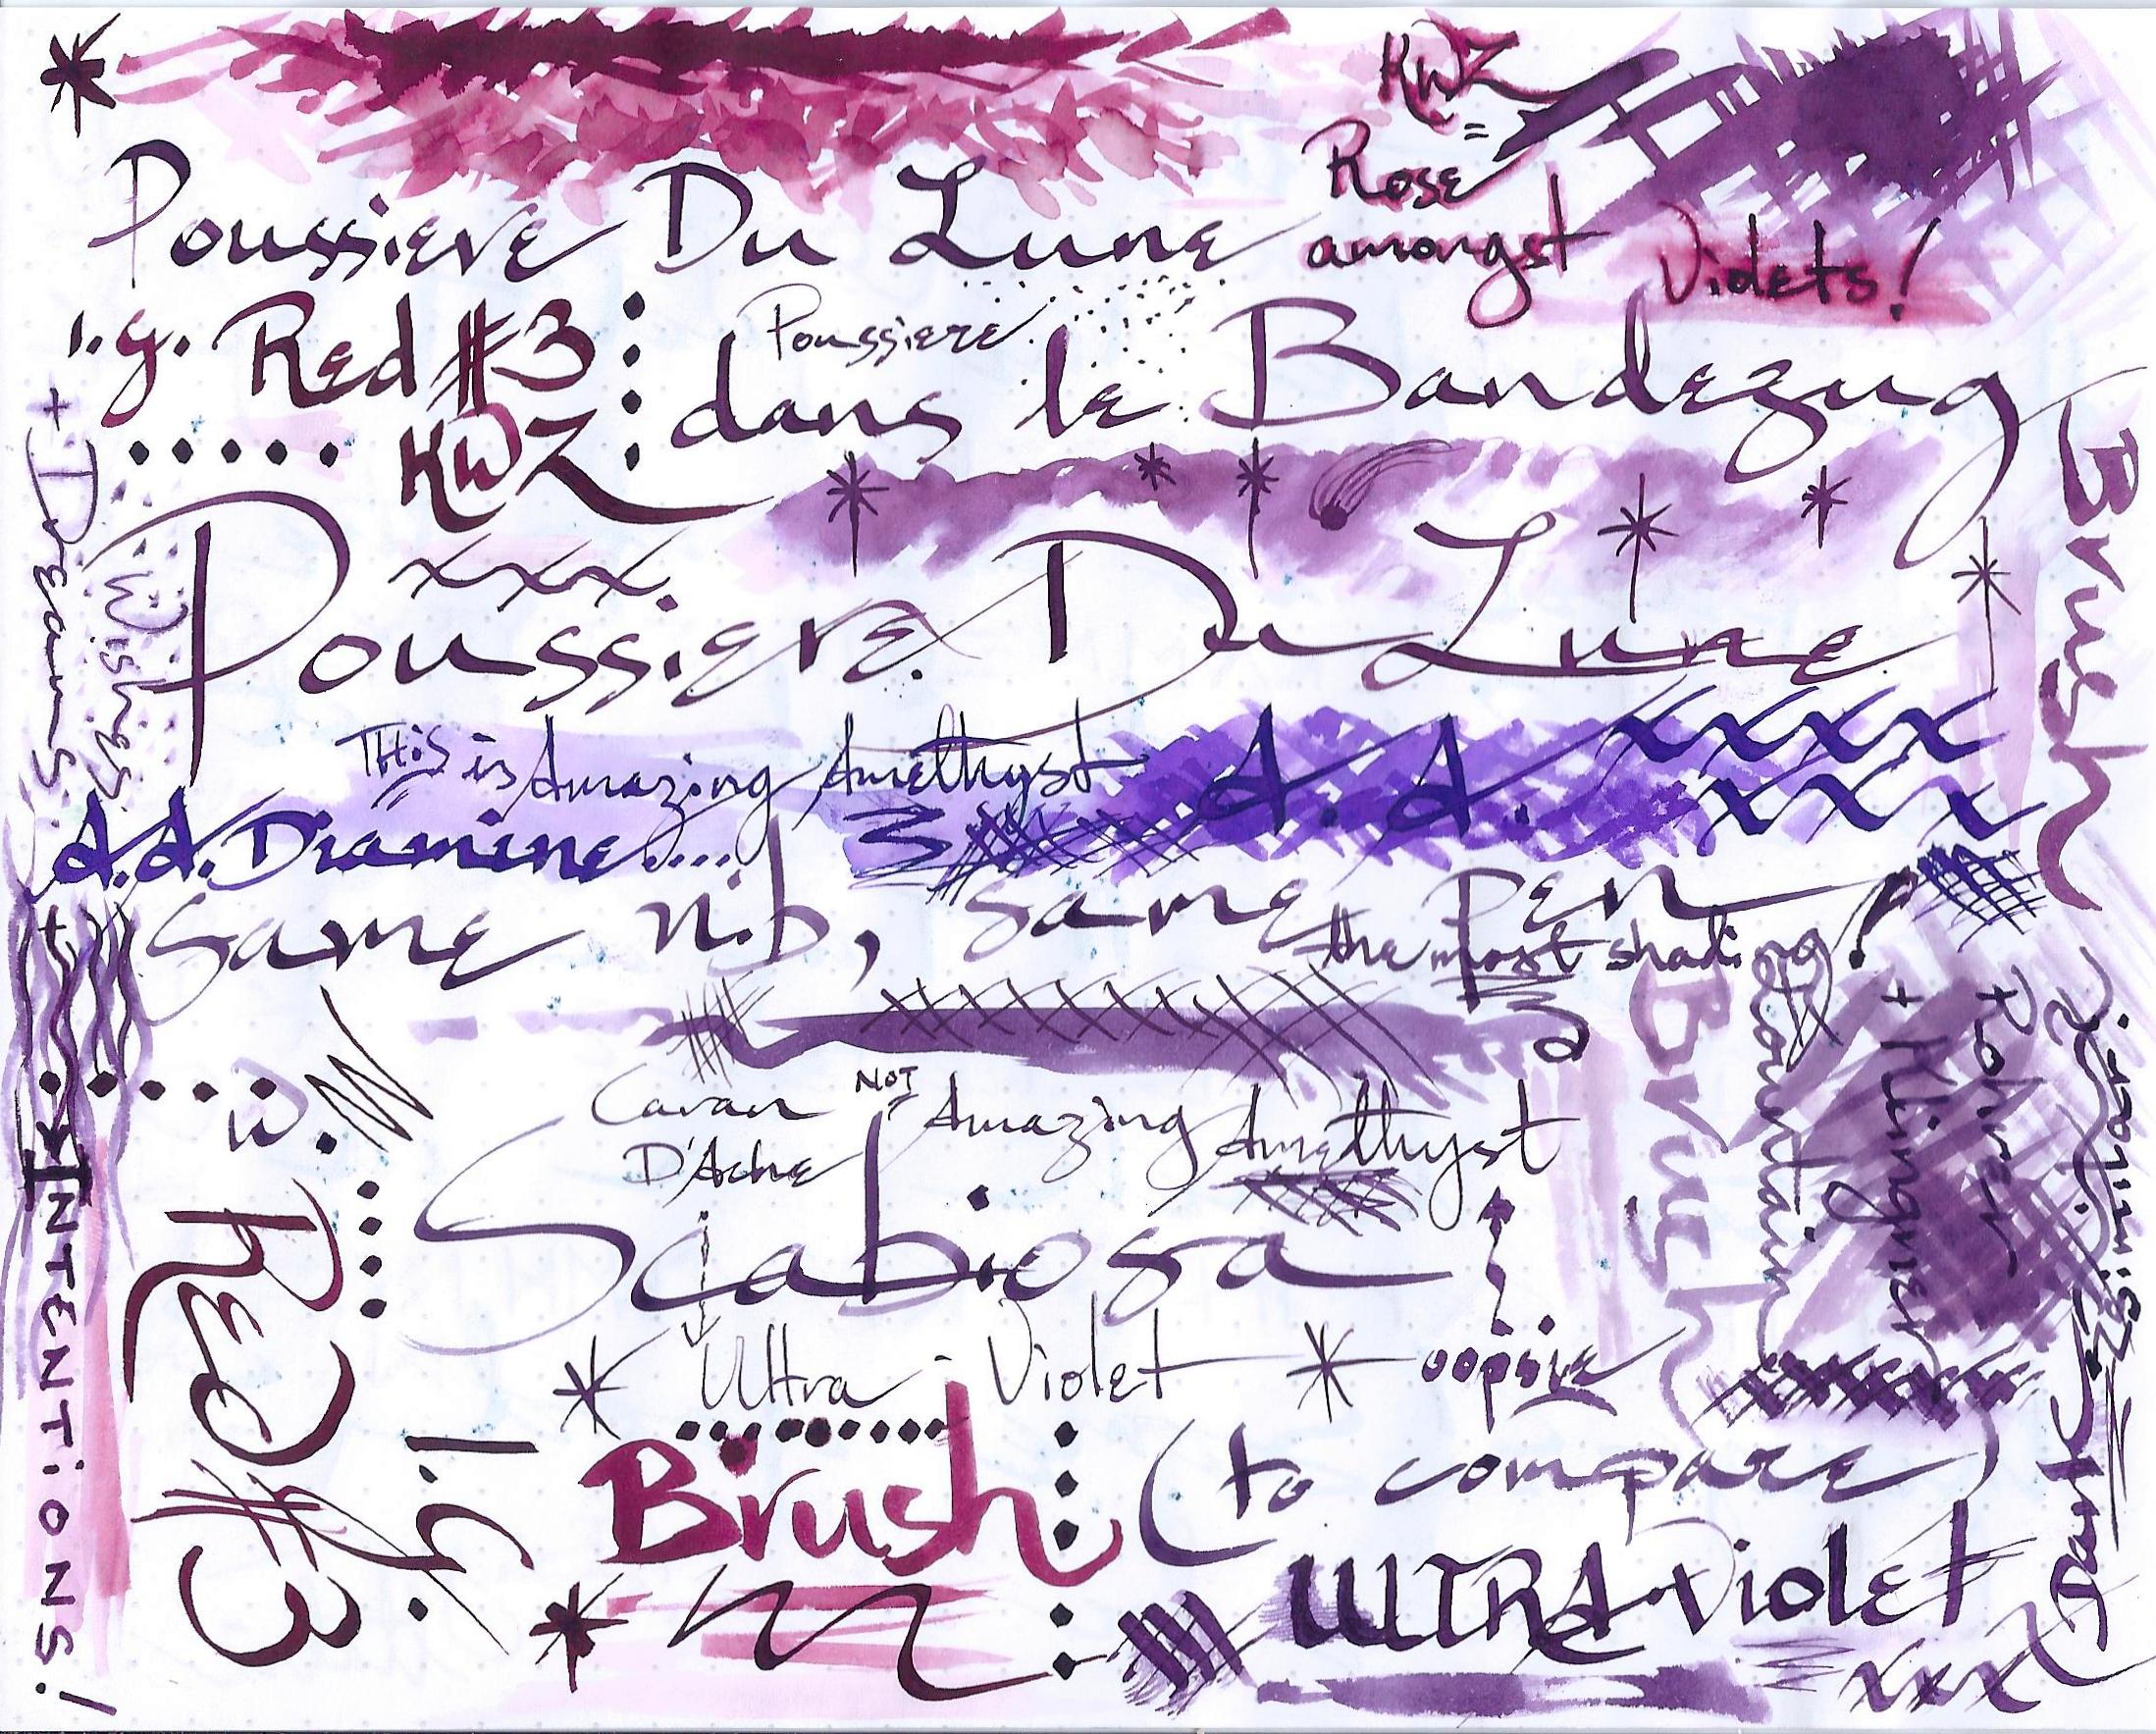 KWZ
=
Rose
amongst
Violets!
Poussiere Du Lune
i.g. Red #3
KWZ
Poussiere
dans le Bandezug
xxx.
Poussiere Du Lune
Brush
+ Dreams.
Wishes
THiS is Amazing Amethyst
A.A. xxxx
xxx
A.A. Diamine....
same nib, same Pen!
the most shading
Caran
D'Ache
NOT
Amazing Amethyst
Scabiosa
Ultra - Violet
oopsie
Brush
Fountain
+ Klingner
+ Rohrer
Dark
+ INTENTiONS!
Red #3
i.g.
Brush
(to compare)
ULTRA-Violet
xxx